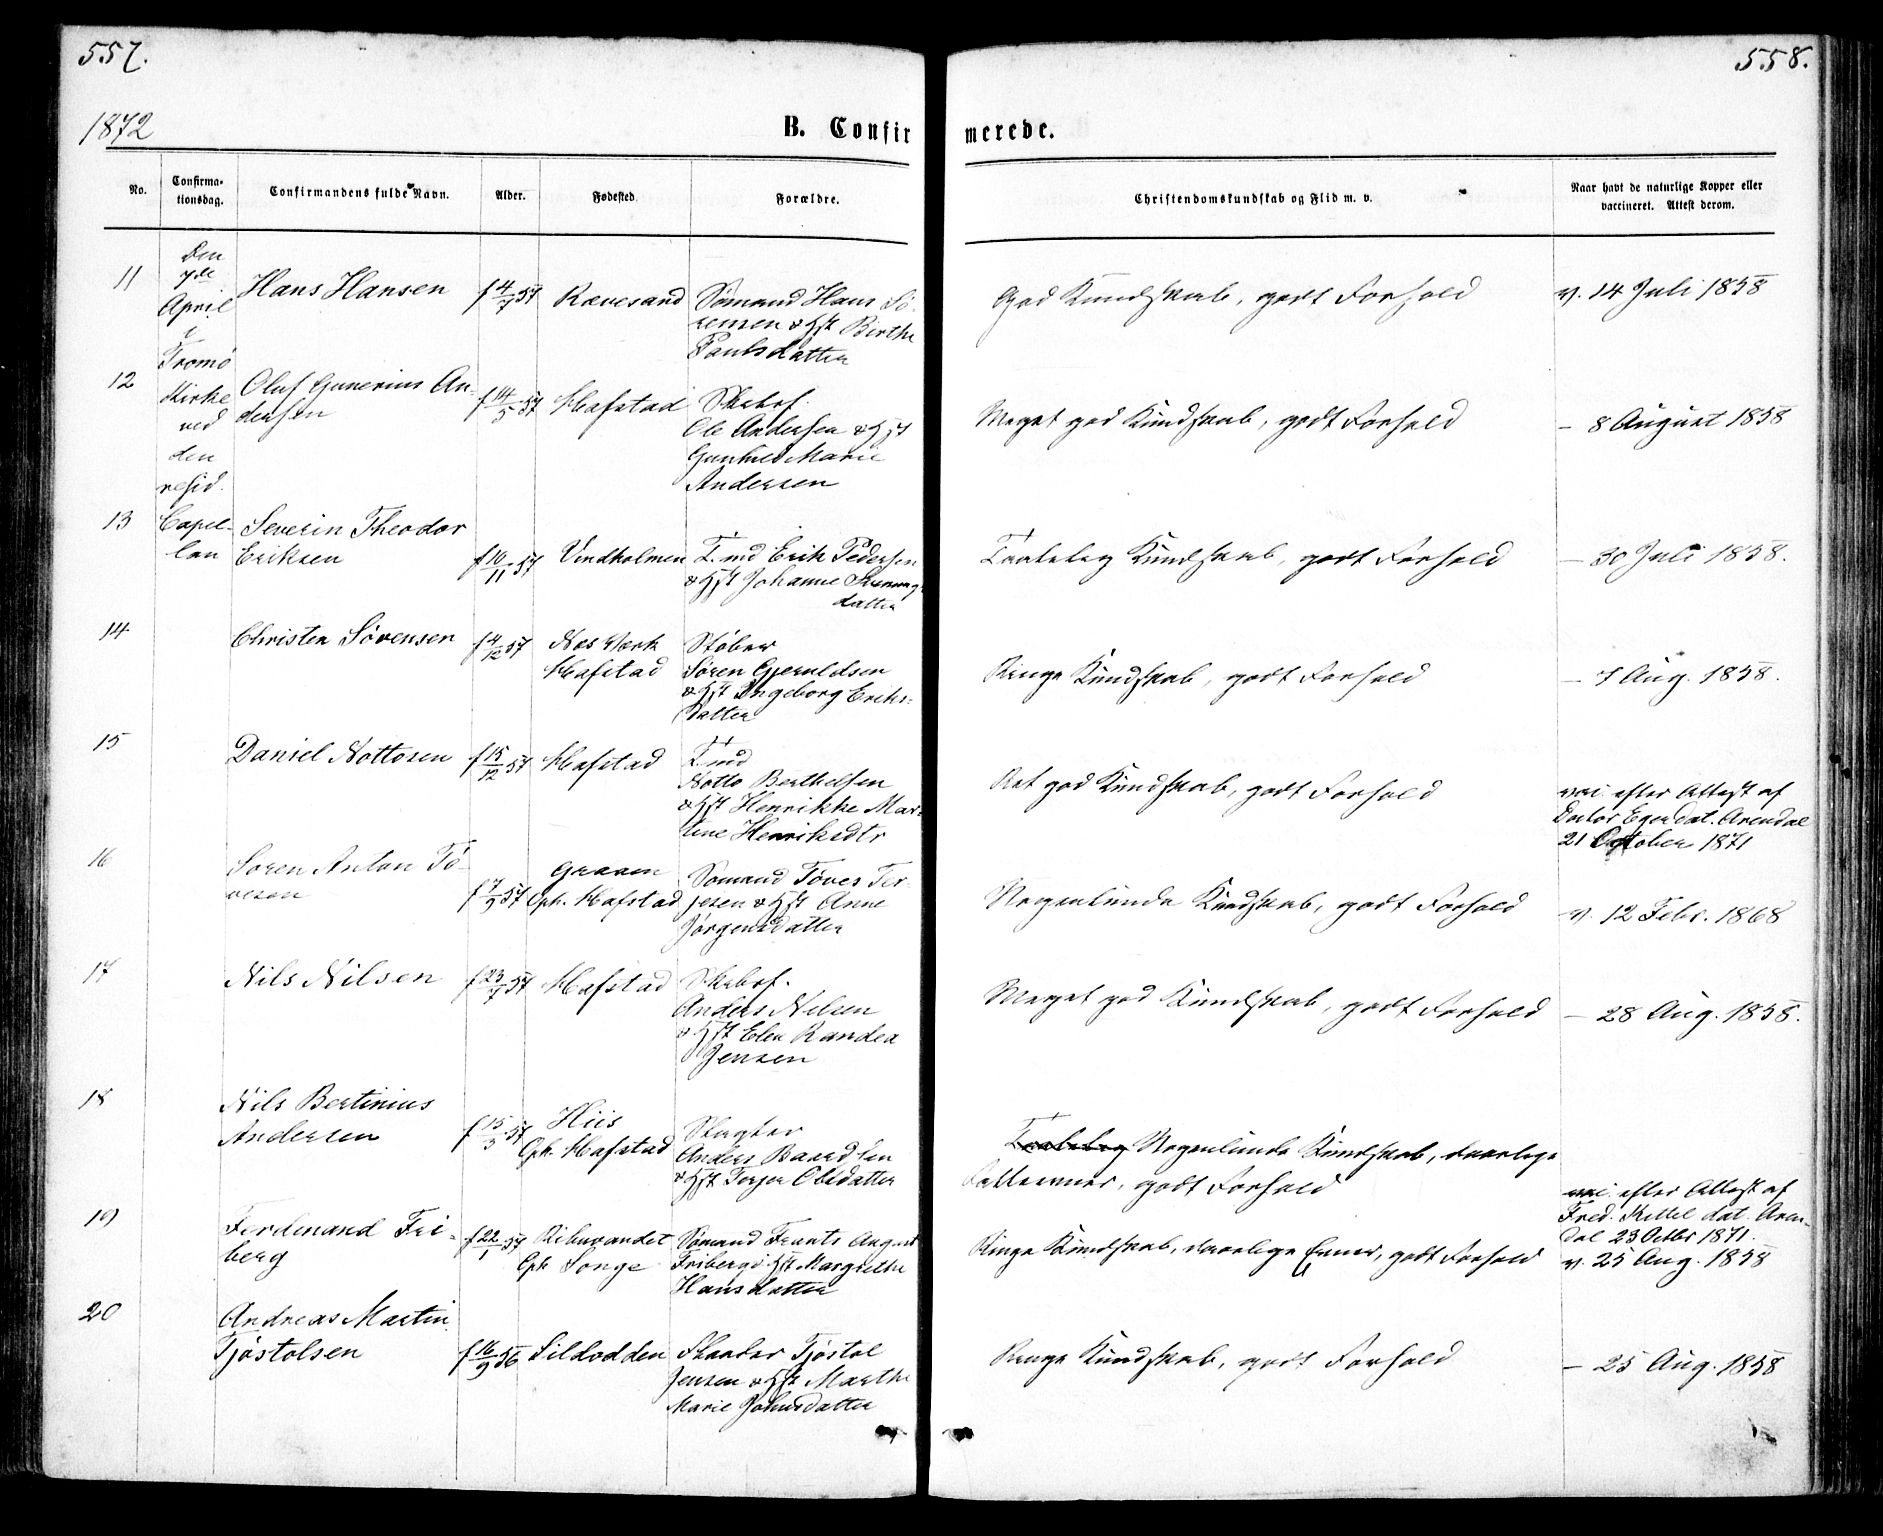 557.
558.
1872
B. Confirmerede.
No.
Confirmationsdag.
Confirmandens fulde Navn.
Alder.
Fødested
Forældre.
Christendomskundskab og Flid m. v.
Naar havt de naturlige Kopper eller
vaccineret. Attest derom.
Den
7de
April
i
Tromø
Kirke
ved
den
resid.
Capel-
lan
11
Hans Hansen
f 4/7 57
Revesand
Sømand Hans Sö-
rensen & Hst Birthe
Paulsdatter
God Kundskab, godt Forhold
v. 14 Juli 1858
12
Oluf Gunerius An-
dersen
f 14/5 57
Hafstad
Skibsf.
Ole Andersen & Hst
Gunhild Marie
Andersen
Meget god Kundskab, godt Forhold
— 8 August 1858
13
Severin Theodor
Eriksen
f 16/11 57
Vindholmen
T.md Erik Pedersen
& Hst Johanne
datter
Taalelig Kundskab, godt Forhold
— 30 Juli 1858.
14
Christen Sörensen
f 4/12 57
Næs Værk
Hafstad
Støber
Søren Gjeruldsen
& Hst Ingeborg Eriks-
datter
Ringe Kundskab, godt Forhold
— 7 Aug. 1858.
15
Daniel Nottosen
f 15/12 57
Hafstad
T.md
Notto Berthelsen
& Hst Henrikke Mar-
tine Henriksdtr
Ret god Kundskab, godt Forhold
vaci. efter Attest af
Doctor Eger dat. Arendal
21 October 1871
16
Soren Anton Tö-
vesen
f 7/9 57
Graven
Oph. Hafstad
Sømand Töves Ter-
jesen & Hst Anne
Jörgensdatter
Nogenlunde Kundskab, godt Forhold
v. 12 Febr. 1868
17
Nils Nilsen
f 23/7 57
Hafstad
Skibsf.
Anders Nilsen
& Hst Elen Randea
Jensen
Meget god Kundskab, godt Forhold
— 28 Aug. 1858.
18
Nils Bertinius
Andersen
f 15/3 57
Hiis
Oph. Hafstad
Slagter
Anders Baardsen
& Hst Torjer Olsdatter
Taalelig Nogenlunde Kundskab, daarlige
godt Forhold
vaci. efter Attest af
Fred. Kittel dat. Aren-
dal 23 Octbr 1871.
19
Ferdinand Fri-
berg
f 22/1 57
Oph Songe
Sømand Frants August
Friberg & Hst Margrethe
Hansdatter
Ringe Kundskab, daarlige Evner, godt Forhold
v. 25 Aug. 1858
20
Andreas Martin
Tjøstolsen
f 16/9 56
Sildodden
Tjøstol
Jensen & Hst Marthe
Marie Johnsdatter
Ringe Kundskab, godt Forhold
— 25 Aug. 1858